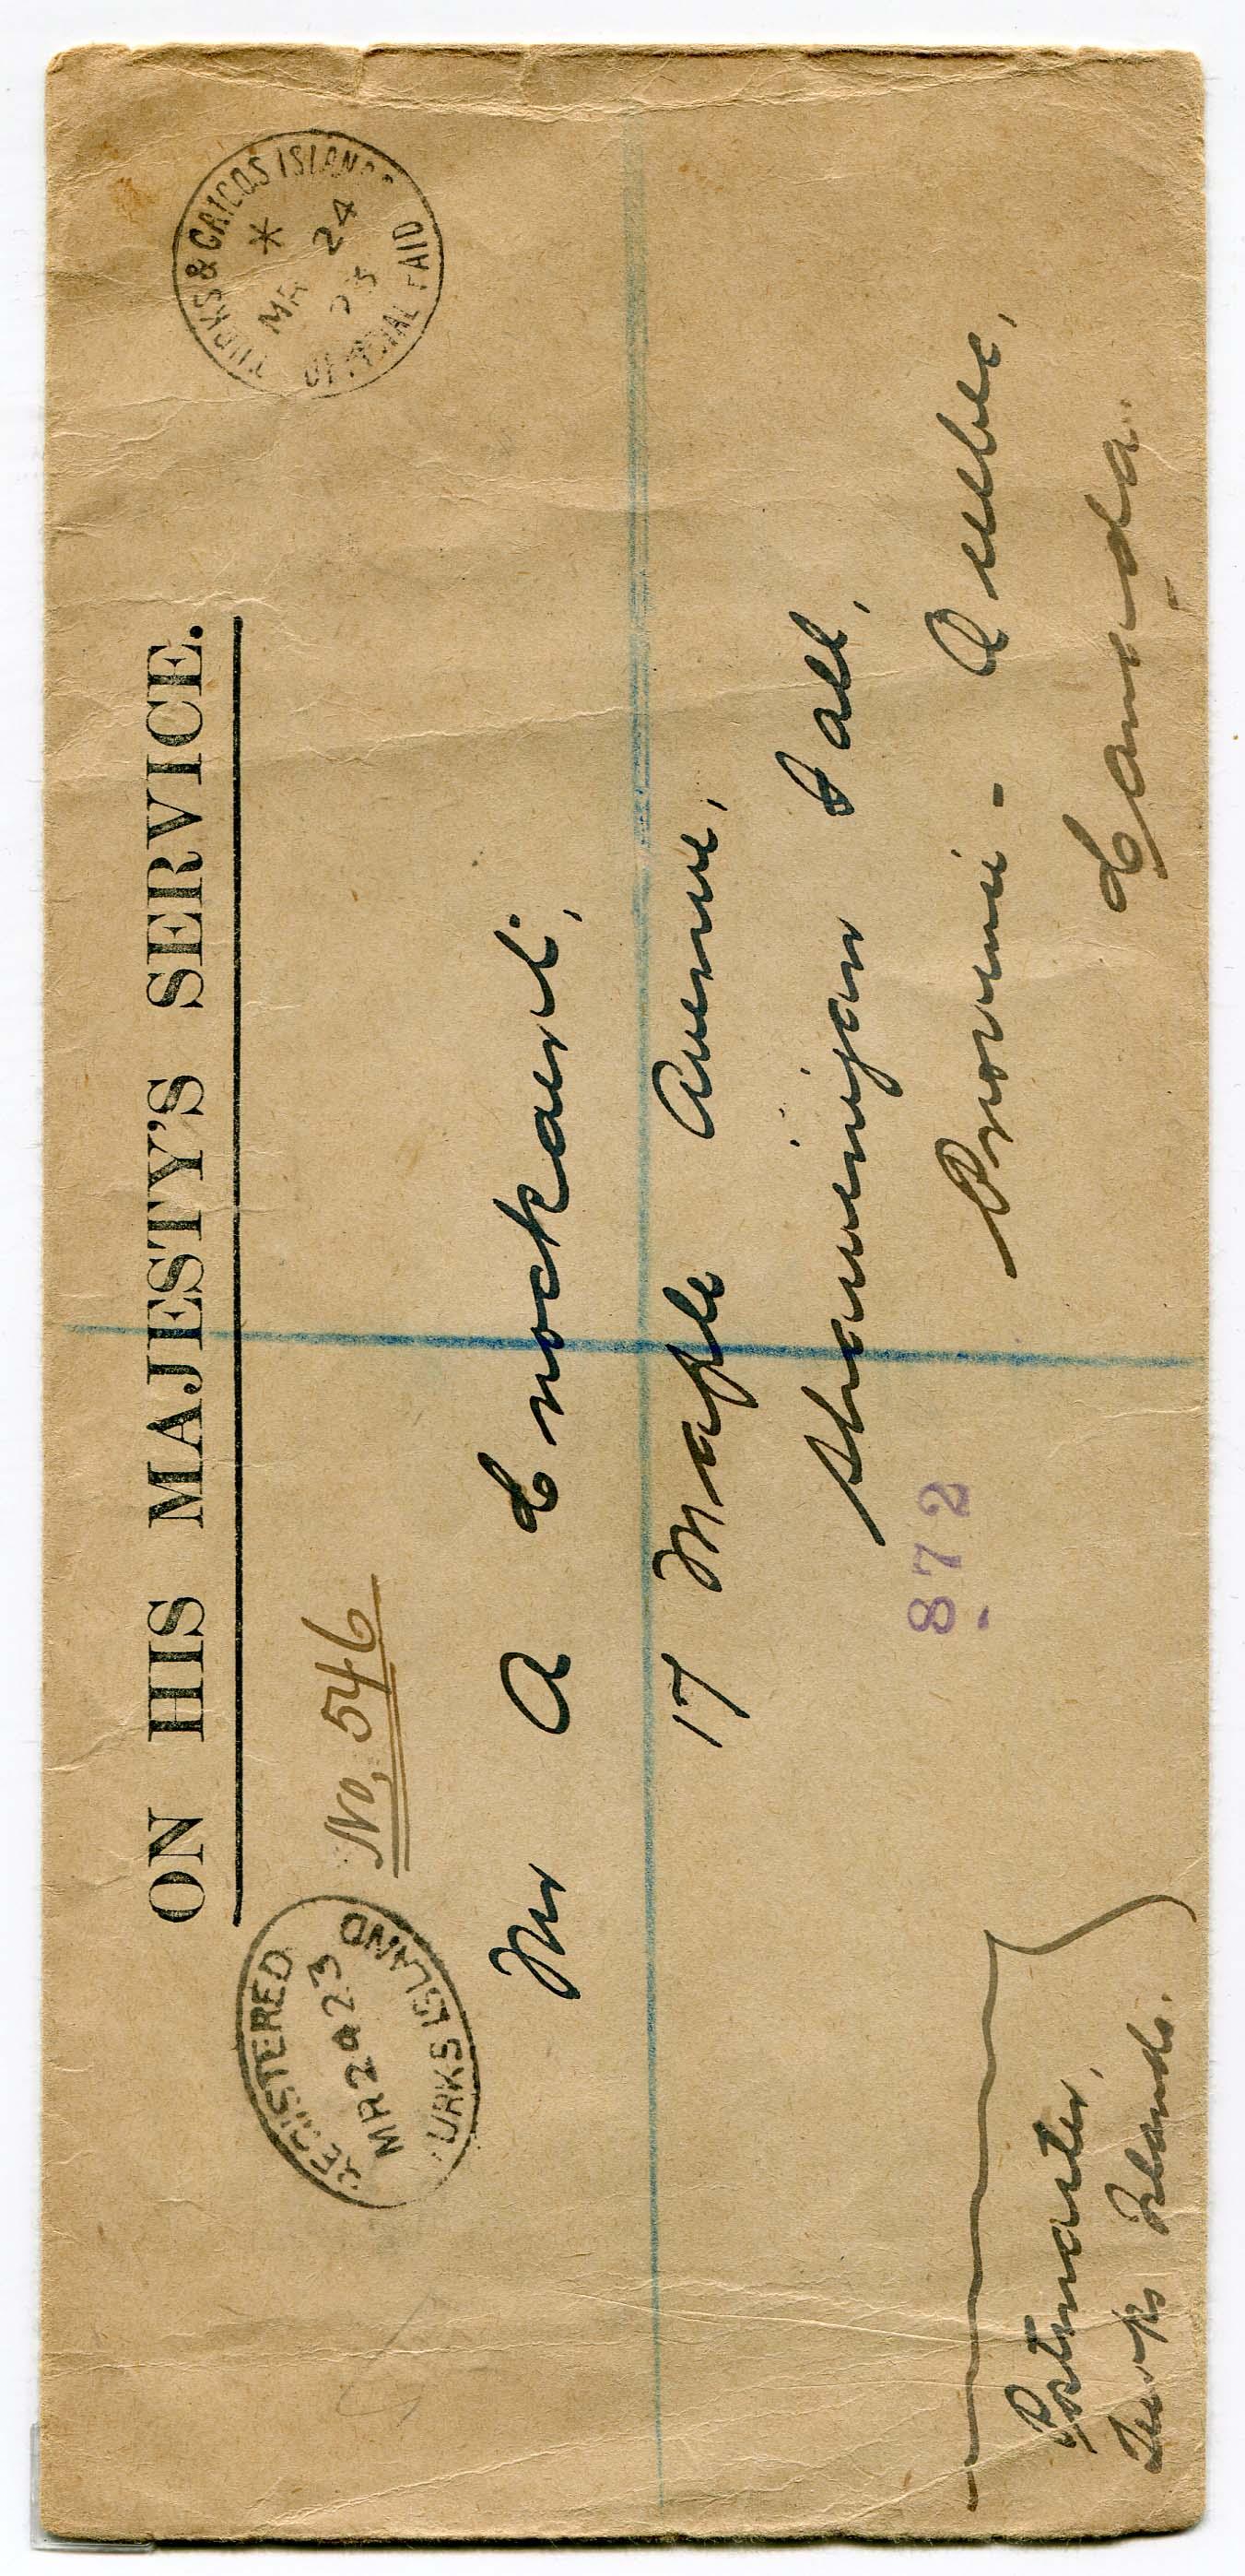 ON HIS MAJESTY'S SERVICE.
TURKS & CAICOS ISLANDS
*
MR 24
23
OFFICIAL PAID
REGISTERED
MR 24 23
TURKS ISLAND
No, 546
Mr A Crockaert,
17 Maple Avenue,
Shawinigan Fall,
Province - Quebec,
Canada.
872
Postmaster,
Turks Islands.